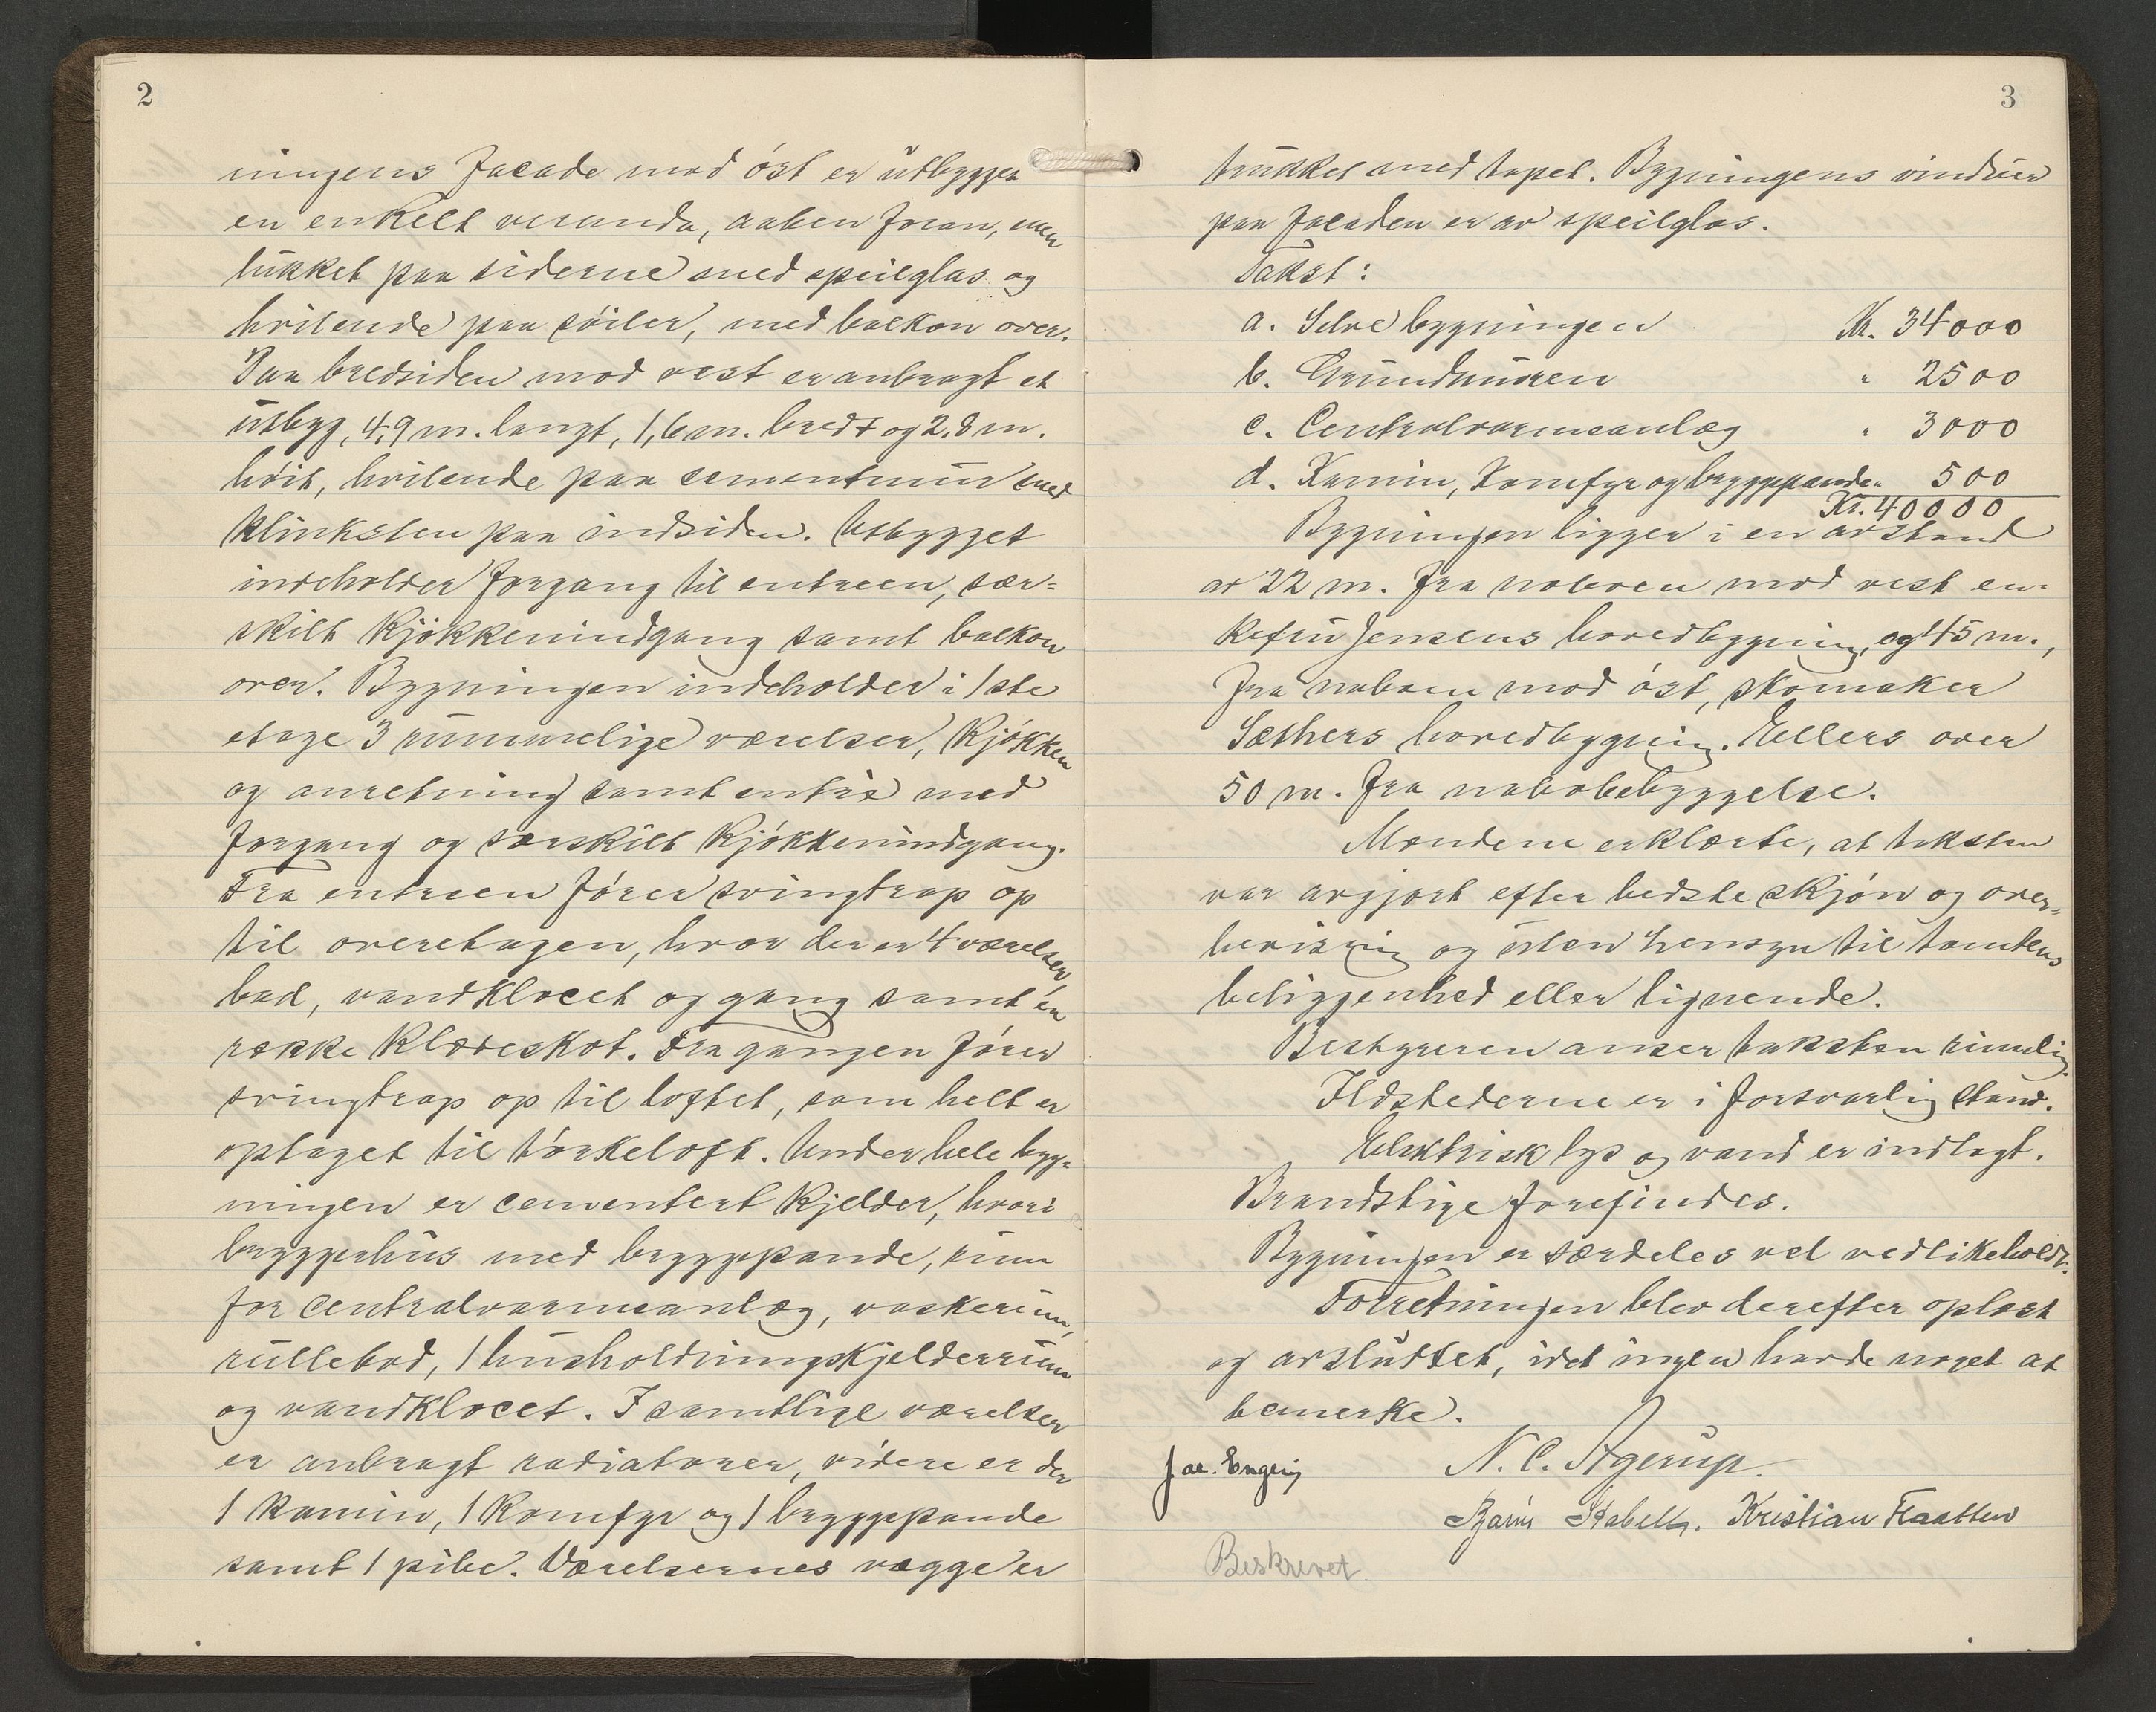 2
ningens facade mod øst er utbygget
en enkelt veranda, aaben foran, men
lukket paa siderne med speilglas og
hvilende paa søiler, med balkon over.
Paa bredsiden mod vest er anbragt et
utbyg, 4,9 m. langt, 1,6 m. bredt og 2,8 m.
høit, hvilende paa cementmur med
klinksten paa indsiden. Utbygget
indeholder forgang til entreen, sær=
skilt kjøkkenindgang samt balkon
over. Bygningen indeholder i 1ste
etage 3 rummelige værelser, kjøkken
og anretning samt entré med
forgang og særskilt kjøkkenindgang.
Fra entreen fører svingtrap op
til overetagen, hvor der er 4 værelser,
bad, vandklocet og gang samt en
række klæreskot. Fra gangen fører
svingtrap op til loftet, som helt er
optaget til tørkeloft. Under hele byg=
ningen er cementert kjelder, hvori
bryggerhus med bryggepande, rum
for centralvarmeanlæg, vaskerum,
rullebod, 1 husholdningskjelderrum
og vandklocet. I samtlige værelser
er anbragt radiatorer, videre er der
1 kamin, 1 komfyr og 1 bryggepande
samt 1 pibe. Værelsernes vægge er
3
trukket med tapet. Bygningens vinduer
paa facaden er av speilglas.
Takst:
a. Selve bygningen Kr. 34000
b. Grundmuren " 2500
c. Centralvarmeanlæg " 3000
d. Kamin, komfyr og bryggepande " 500
Kr. 40000
Bygningen ligger i en avstand
av 22 m. fra naboen mod vest en=
kefru Jensens hovedbygning, og 45 m.,
fra naboen mod øst, skomaker
Sæthers hovedbygning. Ellers over
50 m. fra nabobebyggelse.
Mændene erklærte, at taksten
var avgjort efter bedste skjøn og over=
bevisning og uten hensyn til tomtens
beliggenhed eller lignende.
Bestyreren anser taksten rimelig.
Ildstederne er i forsvarlig stand.
Elektrisk lys og vand er indlagt.
Brandstige forefindes.
Bygningen er særdeles vel vedlikeholdt.
Forretningen blev derefter oplæst
og avsluttet, idet ingen havde noget at
bemerke.
N. C. Agerup.
Kristian Flaatten
Beskrevet.